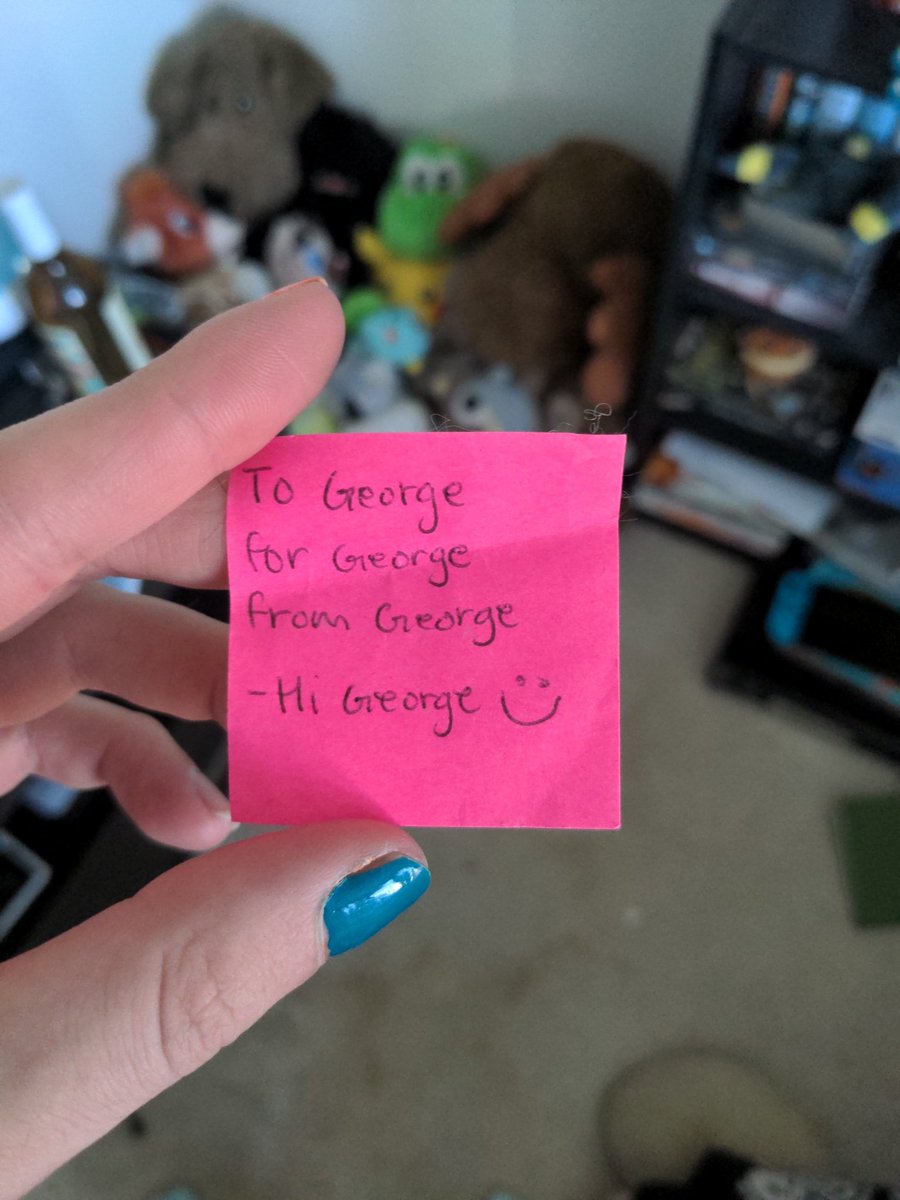 To George
for George
from George
-Hi George